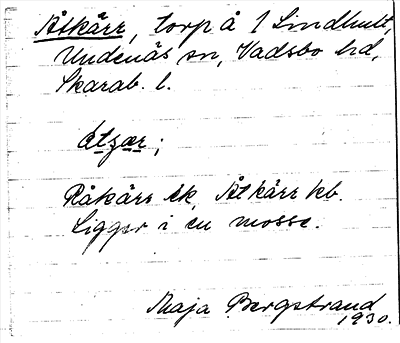 Åtkärr, torp å 1 Lindhult,
Undenäs sn, Vadsbo hd,
Skarab. l.
åtʒær;
Råkärr ek, Åtkärr kb.
Ligger i en mosse.
Maja Bergstrand
1930.